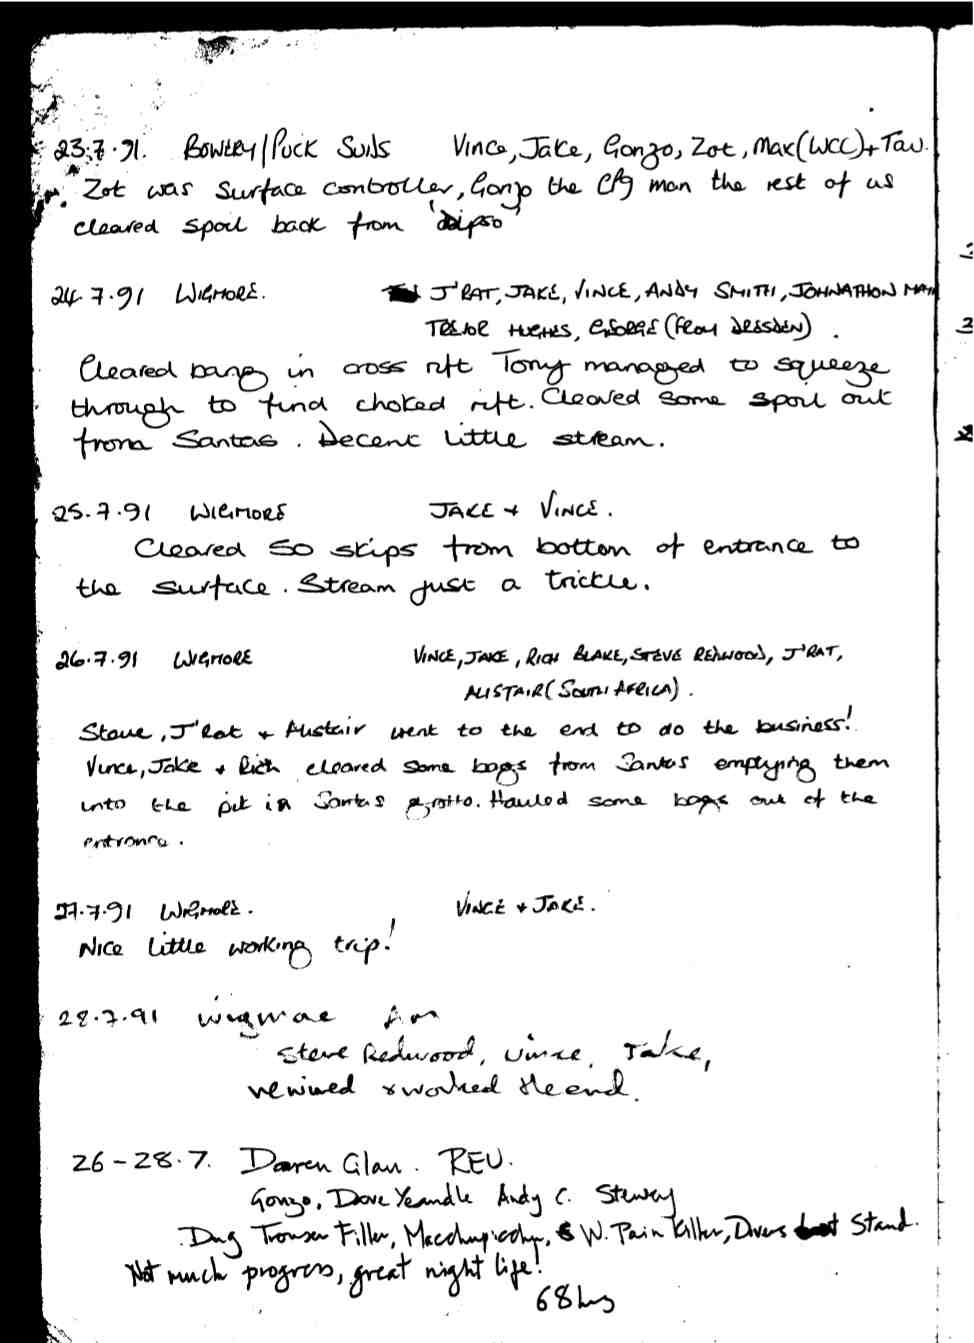 23.7.91. Bowery/Puck Suils Vince, Jake, Gonzo, Zot, Max(WCC)+Tav.
Zot was Surface controller, Gonzo the man the rest of us
cleared spoil back from 'dipso'
24.7.91 WIGMORE. J'RAT, JAKE, VINCE, ANDY SMITH, JOHNATHON
TREVOR HUGHES, GEORGE (from DRESDEN).
Cleared bang in cross rift Tony managed to squeeze
through to find choked rift. Cleared some spoil out
from Santas. Decent little stream.
25.7.91 WIGMORE JAKE + VINCE.
Cleared 50 skips from bottom of entrance to
the surface. Stream just a trickle.
26.7.91 WIGMORE VINCE, JAKE, RICH BLAKE, STEVE REDWOOD, J'RAT,
ALISTAIR (SOUTH AFRICA).
Steve, J'Rat + Alistair went to the end to do the business!
Vince, Jake + Rich cleared some bags from Santas emptying them
into the pit in Santas grotto. Hauled some bags out of the
entrance.
27.7.91 WIGMORE. VINCE + JAKE.
Nice little working trip!
28.7.91 wigmore Am
Steve Redwood, Vince, Jake,
& worked the end.
26-28.7. Daren Cilau. REU.
Gonzo, Dave Yeandle Andy C. Stewey
Dug Trouser Filler, Macchupicchu, W. Pain Killer, Divers Stand.
Not much progress, great night life!
68hrs